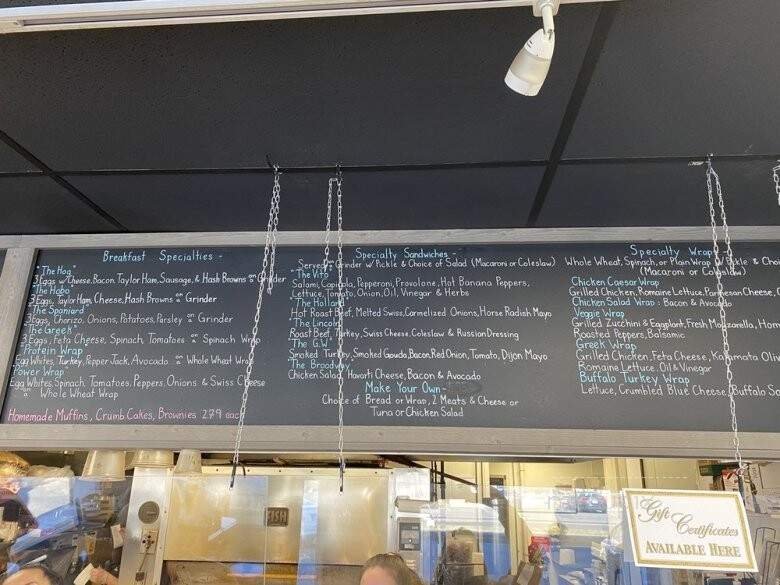 Breakfast Specialties -
"The Hog"
3 Eggs w/Cheese, Bacon, Taylor Ham, Sausage, & Hash Browns on Grinder
"The Hobo"
3 Eggs, Taylor Ham, Cheese, Hash Browns on Grinder
"The Spaniard"
3 Eggs, Chorizo, Onions, Potatoes, Parsley on Grinder
"The Greek"
3 Eggs, Feta Cheese, Spinach, Tomatoes on Spinach Wrap
"Protein Wrap"
Egg Whites, Turkey, Pepper Jack, Avocado on Whole Wheat Wrap
"Power Wrap"
Egg Whites, Spinach, Tomatoes, Peppers, Onions & Swiss Cheese
on Whole Wheat Wrap
Homemade Muffins, Crumb Cakes, Brownies 2.79 each
Specialty Sandwiches -
Served on Grinder w/ Pickle & Choice of Salad (Macaroni or Coleslaw)
"The Vito"
Salami, Capicola, Pepperoni, Provolone, Hot Banana Peppers,
Lettuce, Tomato, Onion, Oil, Vinegar & Herbs
"The Holland"
Hot Roast Beef, Melted Swiss, Carmelized Onions, Horse Radish Mayo
"The Lincoln"
Roast Beef, Turkey, Swiss Cheese, Coleslaw & Russian Dressing
"The G.W."
Smoked Turkey, Smoked Gowda, Bacon, Red Onion, Tomato, Dijon Mayo
"The Broadway"
Chicken Salad, Havarti Cheese, Bacon & Avocado
Make Your Own -
Choice of Bread or Wrap, 2 Meats & Cheese or
Tuna or Chicken Salad
Specialty Wrap
Whole Wheat, Spinach, or Plain Wrap w/ Pickle &
(Macaroni or Coleslaw)
Chicken Caesar Wrap
Grilled Chicken, Romaine Lettuce, Parmesan Cheese,
Chicken Salad Wrap: Bacon & Avocado
Veggie Wrap
Grilled Zucchini & Eggplant, Fresh Mozzarella,
Roasted Peppers, Balsamic
Greek Wrap
Grilled Chicken, Feta Cheese, Kalamata
Romaine Lettuce, Oil & Vinegar
Buffalo Turkey Wrap
Lettuce, Crumbled Blue Cheese, Buffalo
Gift Certificates
AVAILABLE HERE